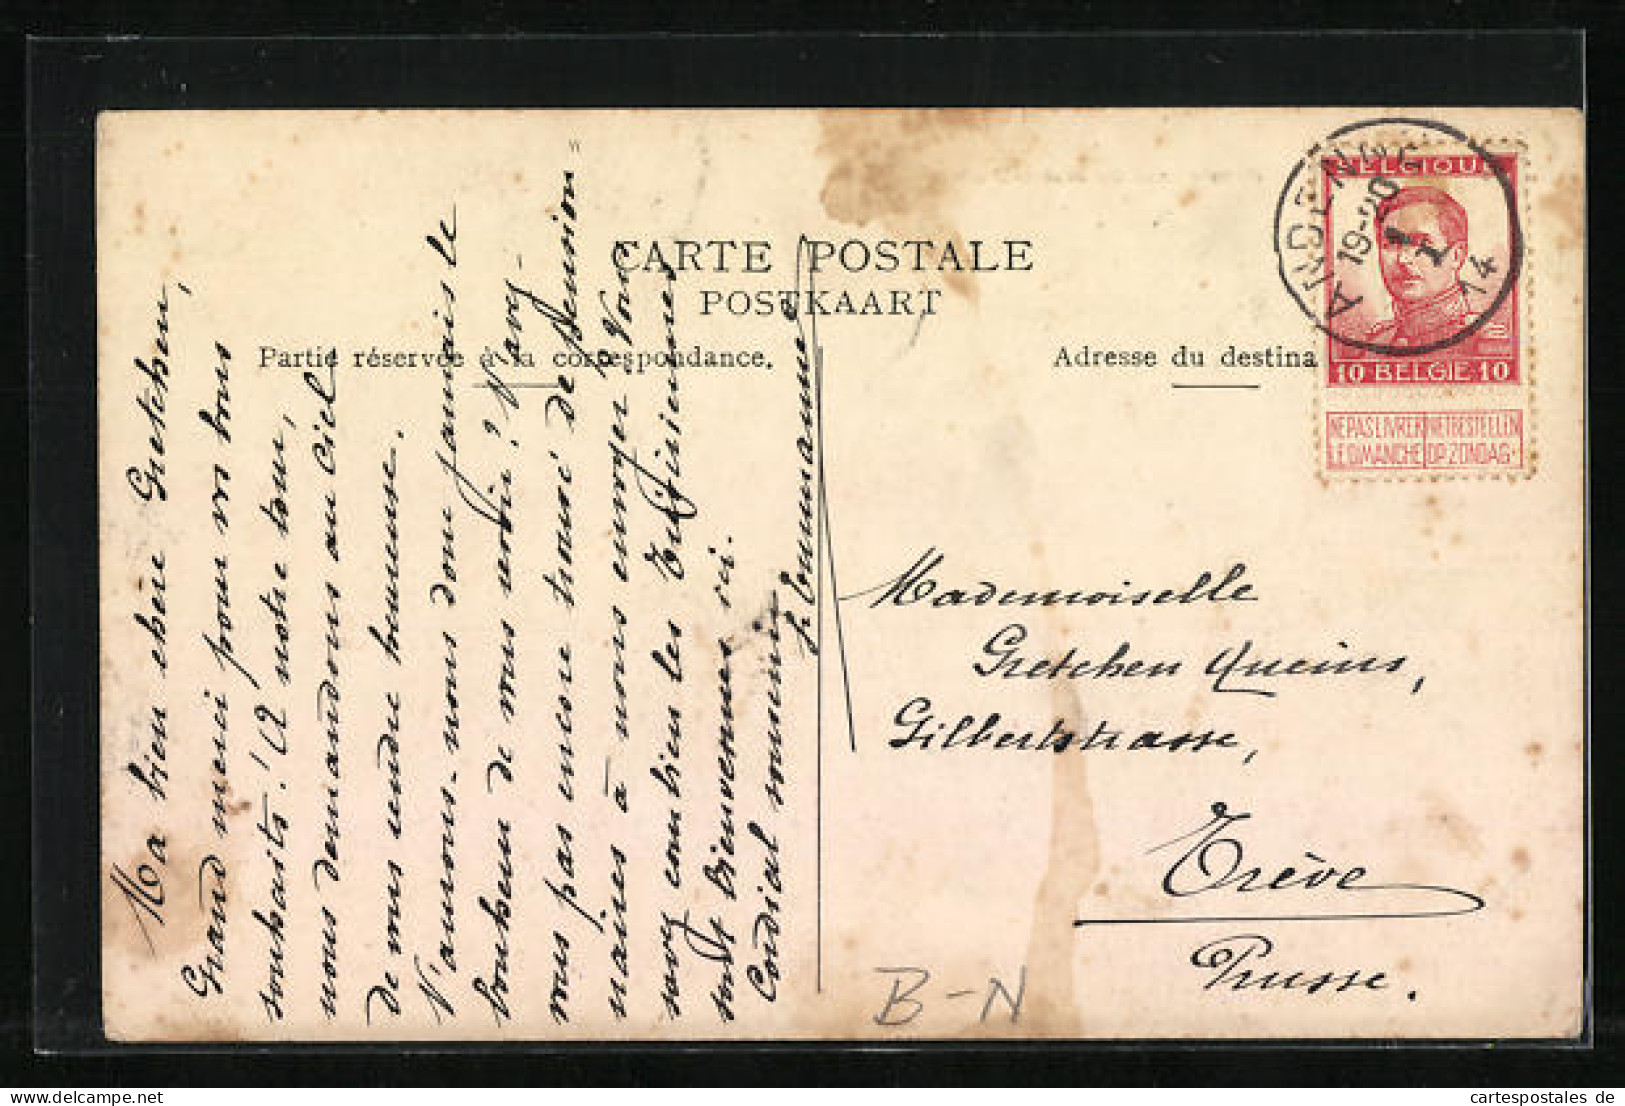 CARTE POSTALE
POSTKAART
Partie réservée à la correspondance.
Adresse du destina
Ma bien chère Gretchen,
Grand merci pour vos bons
souhaits! A notre tour,
nous demandons au ciel
de vous rendre heureuse.
N'aurons-nous donc jamais le
bonheur de vous revoir? N'avez-
vous pas encore trouvé de pension
naires à nous envoyer? Vous
savez combien les
sont bienvenues ici.
Cordial souvenir
BELGIQUE
10 BELGIE 10
NE PAS LIVRER
LE DIMANCHE
NIET BESTELLEN
OP ZONDAG
19-20
1
I
14
Mademoiselle
Gretchen Queins,
Gilbertstrasse,
Trève
Prusse.
B-N
cartespostales de